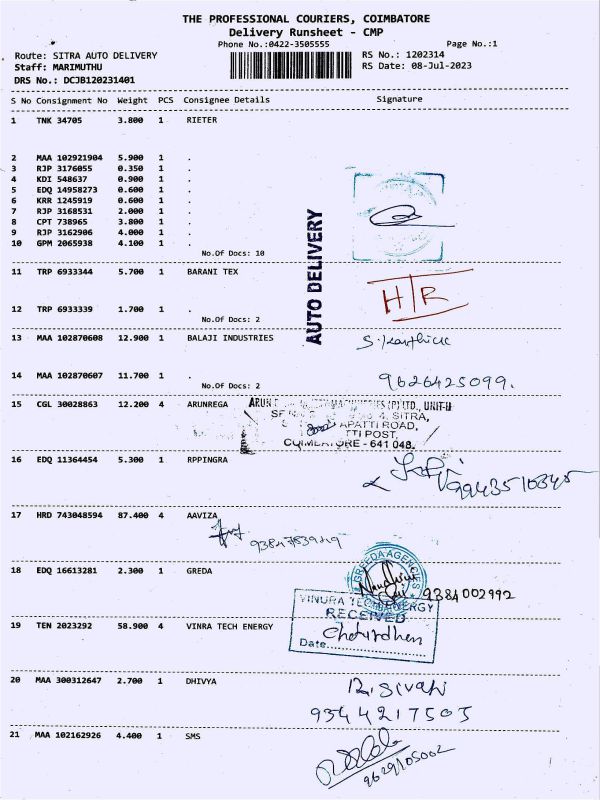 THE PROFESSIONAL COURIERS, COIMBATORE
Delivery Runsheet - CMP
Phone No.:0422-3505555
Page No.:1
Route: SITRA AUTO DELIVERY
RS No.: 1202314
Staff: MARIMUTHU
RS Date: 08-Jul-2023
DRS No.: DCJB120231401
S No Consignment No Weight PCS Consignee Details Signature
1 TNK 34705 3.800 1 RIETER
2 MAA 102921904 5.900 1 .
3 RJP 3176055 0.350 1 .
4 KDI 548637 0.900 1 .
5 EDQ 14958273 0.600 1 .
6 KRR 1245919 0.600 1 .
7 RJP 3168531 2.000 1 .
8 CPT 738965 3.800 1 .
9 RJP 3162906 4.000 1 .
10 GPM 2065938 4.100 1 .
No.Of Docs: 10
AUTO DELIVERY
11 TRP 6933344 5.700 1 BARANI TEX
H R
12 TRP 6933339 1.700 1 .
No.Of Docs: 2
13 MAA 102870608 12.900 1 BALAJI INDUSTRIES
14 MAA 102870607 11.700 1 .
9626425099.
No.Of Docs: 2
15 CGL 30028863 12.200 4 ARUNREGA
(P) LTD., UNIT-II
4, SITRA,
APATTI ROAD,
TTI POST,
COIMBATORE - 641 048.
16 EDQ 11364454 5.300 1 RPPINGRA
17 HRD 743048594 87.400 4 AAVIZA
18 EDQ 16613281 2.300 1 GREDA
GREEDA AGENCIES
9384002992
VINURA TECH ENERGY
RECEIVED
19 TEN 2023292 58.900 4 VINRA TECH ENERGY
Date
20 MAA 300312647 2.700 1 DHIVYA
R. Sivaki
9344217503
21 MAA 102162926 4.400 1 SMS
9629105002